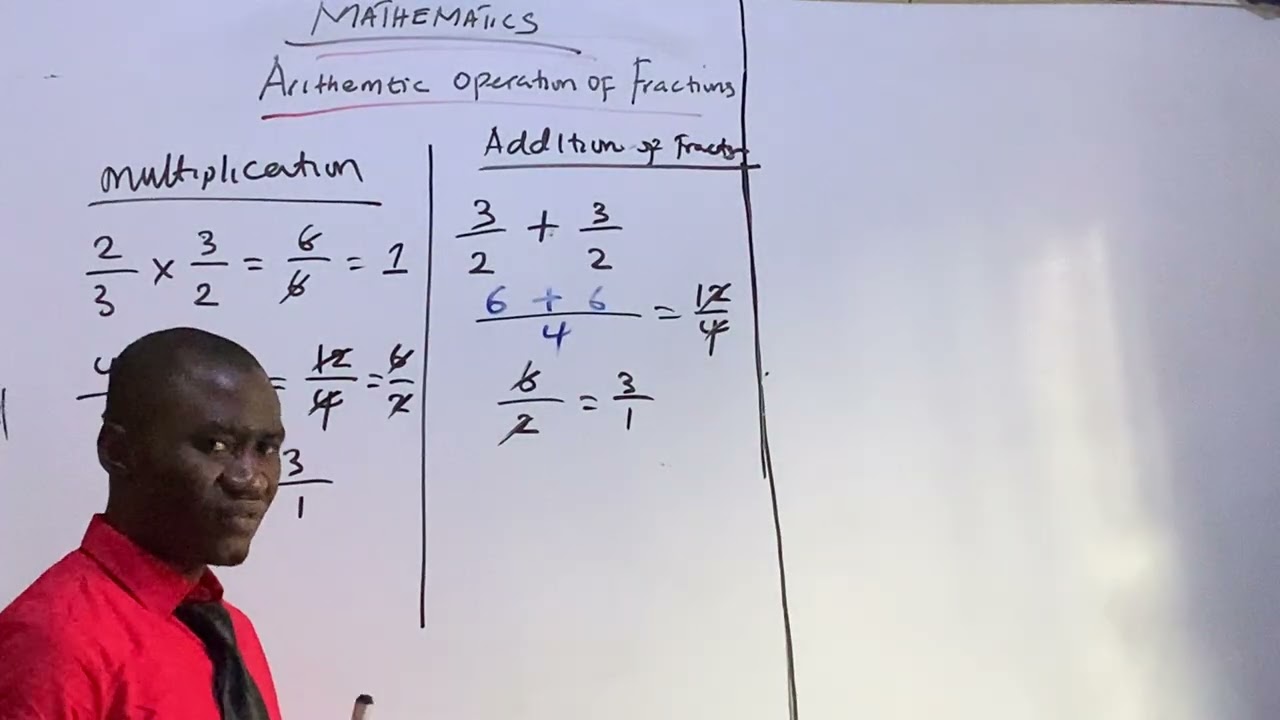 MATHEMATICS
Arithemtic Operation of Fractions
multiplication
2/3 x 3/2 = 6/6 = 1
= 12/4 = 6/2
3/1
Addition of
3/2 + 3/2
6 + 6/4 = 12/4
6/2 = 3/1